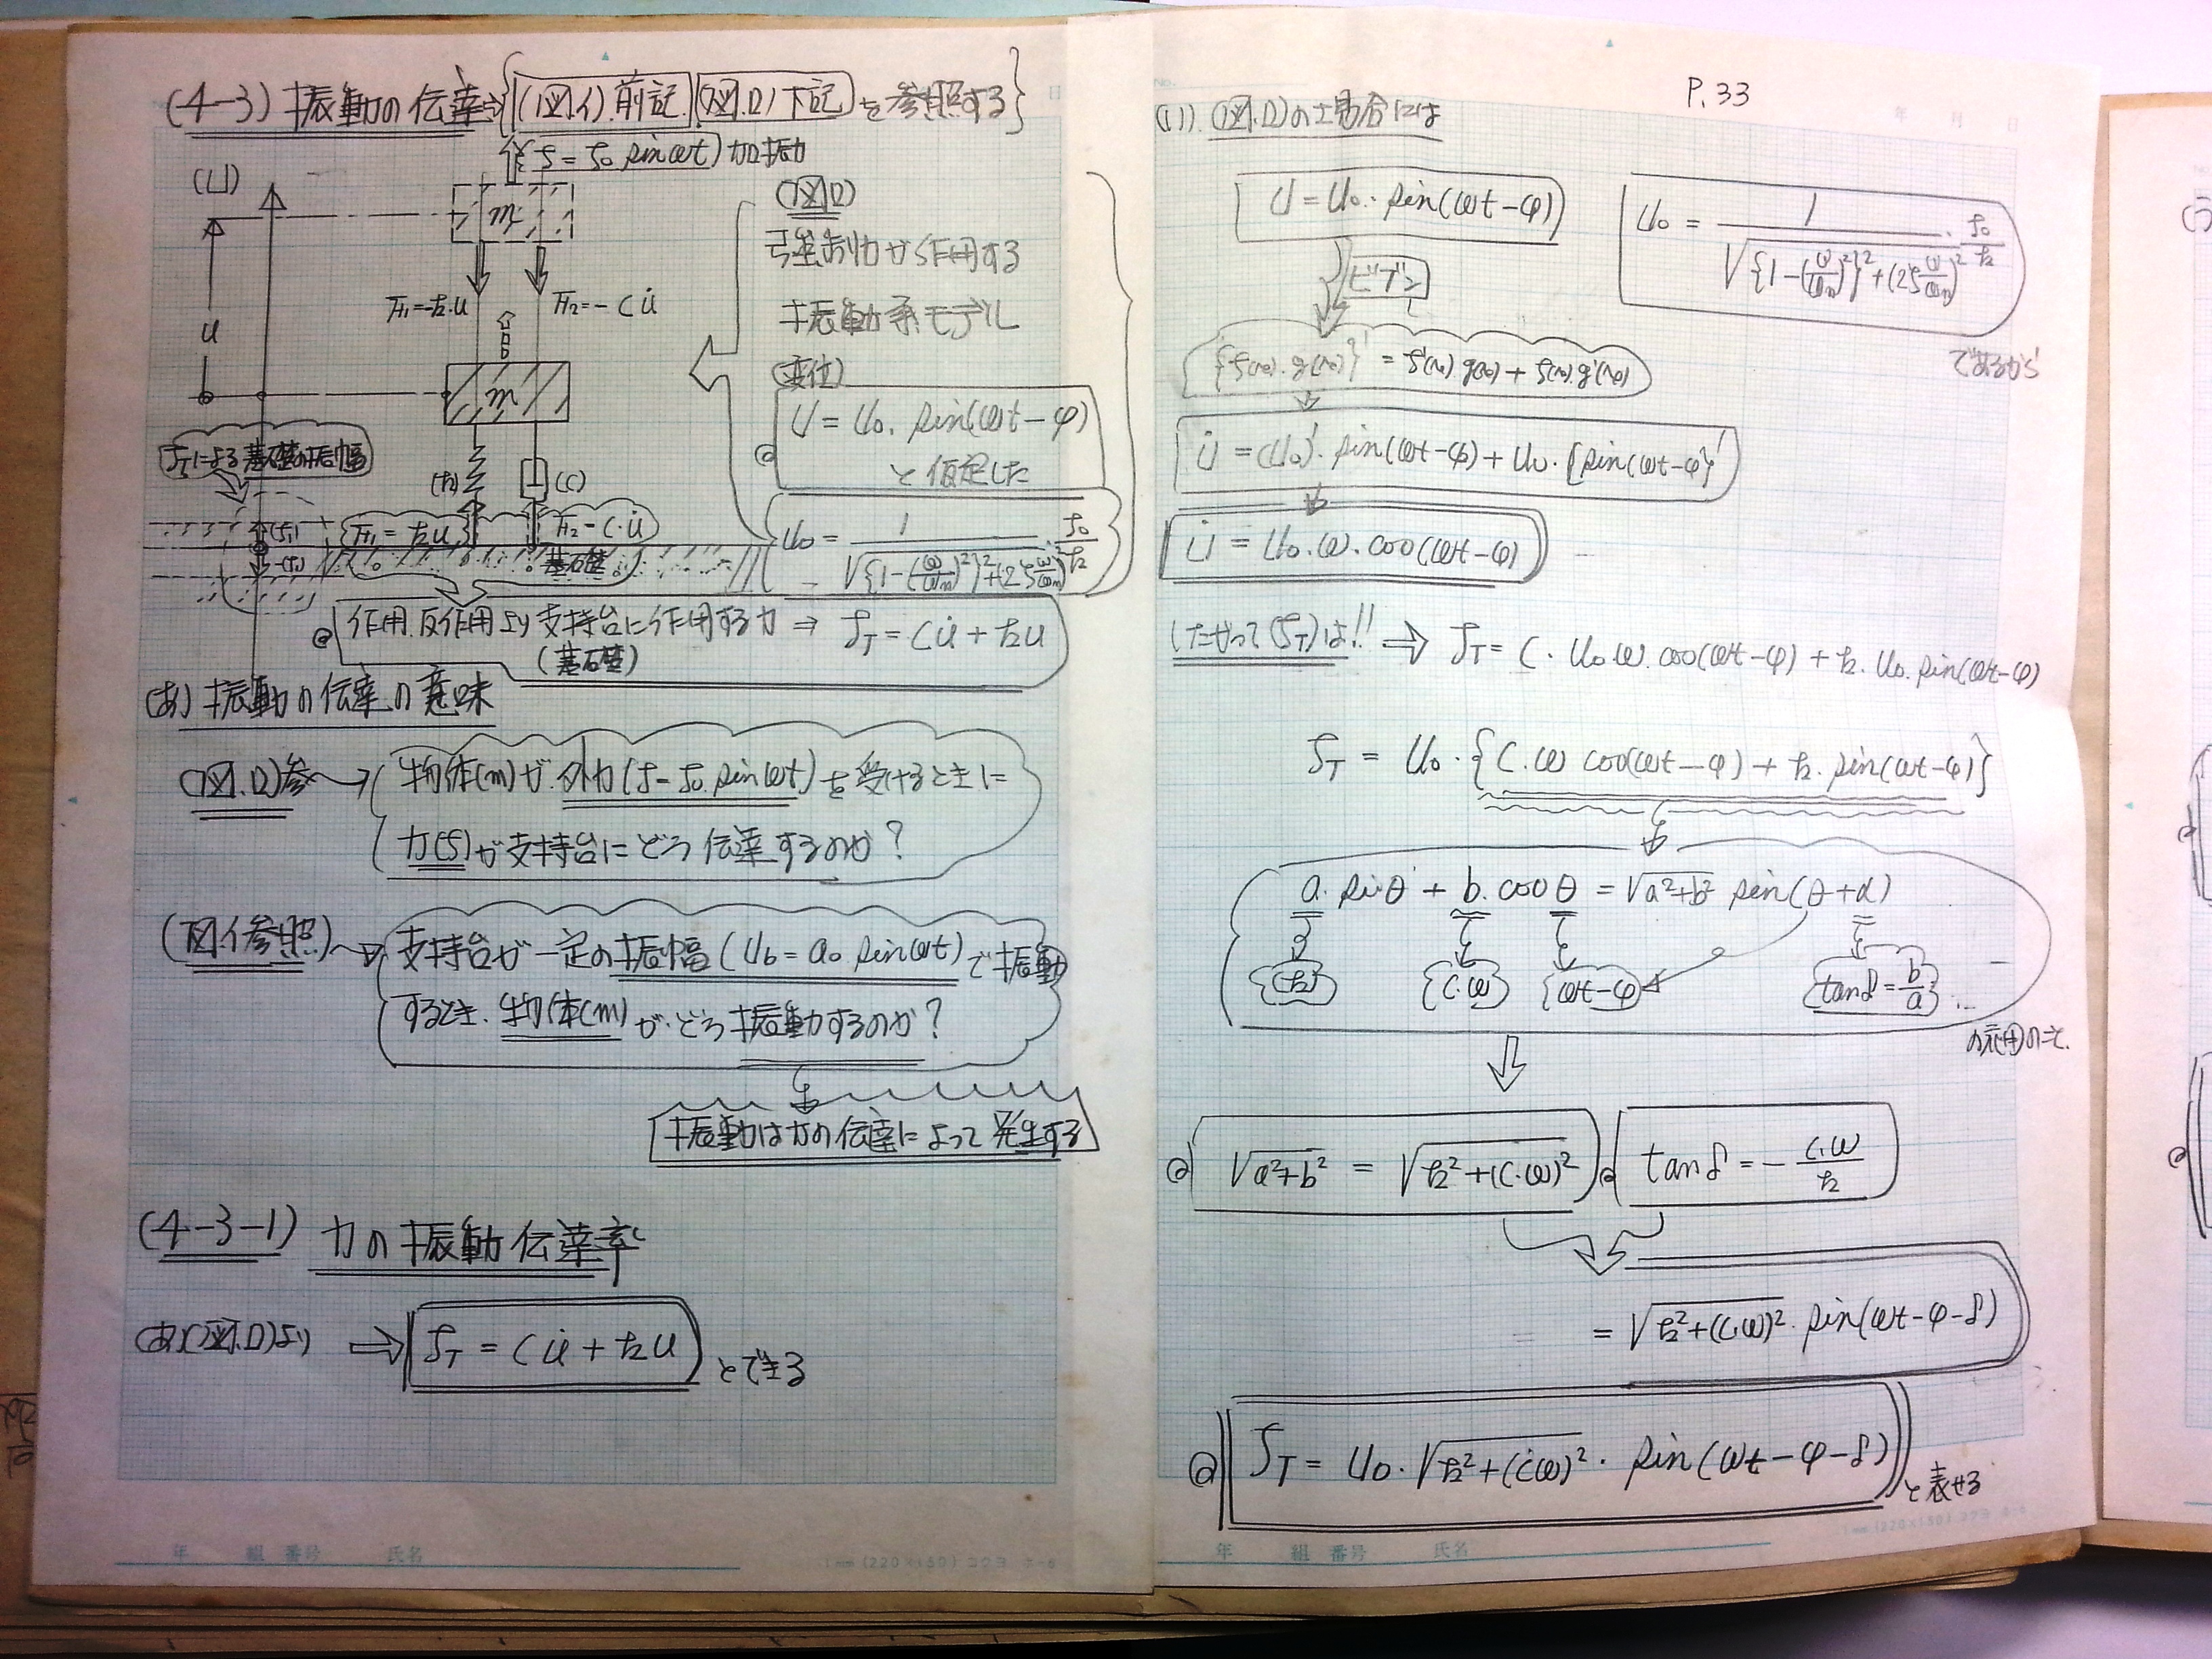 (4-3) 振動の伝達⇒{(図.イ)前記 (図.ロ)下記 を参照する}
{f = f₀ sin ωt} 加振力
(U)
m
F₁=-k·u
F₂=-Cu̇
u
m
f_Tによる基礎の振幅
(k)
(C)
F₁=ku
F₂=C·u̇
基礎
(図ロ)
弾性制力が作用する
振動系モデル
(変位)
U = U₀. sin(ωt-φ)
と仮定した
U₀ = 1/√{1-(ω/ωn)²}²+(2ζω/ωn)² · f₀/k
作用.反作用より 支持台に作用する力 ⇒ f_T = Cu̇ + ku
(基礎)
(あ) 振動の伝達の意味
(図.ロ)参→ 物体(m)が.外力(f=f₀ sin ωt)を受けるときに
力(f)が支持台にどう伝達するのか?
(図イ参照)→ 支持台が一定の振幅(U_b=a₀ sin ωt)で振動
するとき.物体(m)が.どう振動するのか?
振動は力の伝達によって発生する
(4-3-1) 力の振動伝達率
(あ)(図.ロ)より ⇒ f_T = Cu̇ + ku とできる
P.33
(1). (図.ロ)の場合には
U = U₀. sin(ωt-φ)
U₀ = 1/√{1-(ω/ωn)²}²+(2ζω/ωn)² · f₀/k
であるから
ビブン
{f(x).g(x)}' = f'(x).g(x) + f(x).g'(x)
u̇ = (U₀)'. sin(ωt-φ) + U₀.{sin(ωt-φ)}'
u̇ = U₀.ω.cos(ωt-φ)
したがって(f_T)は!! ⇒ f_T = C. U₀ω. cos(ωt-φ) + k. U₀. sin(ωt-φ)
f_T = U₀.{C.ω cos(ωt-φ) + k. sin(ωt-φ)}
a. sinθ + b. cosθ = √a²+b² sin(θ+α)
(k) (C.ω) (ωt-φ) tanδ = b/a
の応用のこと.
√a²+b² = √k²+(C.ω)²
tanδ = - C.ω/k
= √k²+(C.ω)². sin(ωt-φ-δ)
f_T = U₀. √k²+(Cω)². sin(ωt-φ-δ) と表せる
年 組 番号 氏名
1mm (220×150) コクヨ ホ-8
年 組 番号 氏名